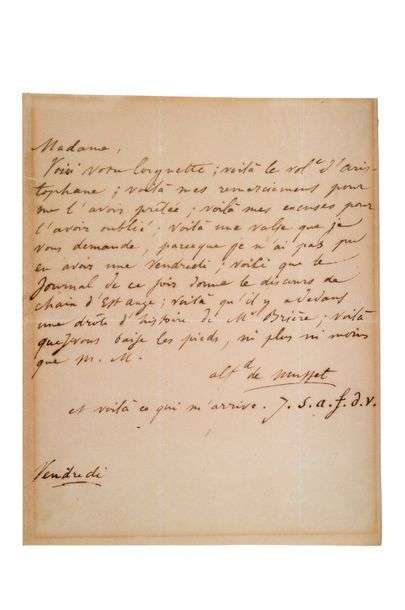 Madame,
Voici votre lorgnette ; voilà le vol.e d'Aris-
tophane ; voilà mes remerciemens pour
me l'avoir prêtée ; voilà mes excuses pour
l'avoir oublié ; voilà une valse que je
vous demande, parceque je n'ai pas pu
en avoir une vendredi ; voilà que le
Journal de ce soir donne le discours de
chaix d'Est ange ; voilà qu'il y a dedans
une drôle d'histoire de Mr Brière ; voilà
que je vous baise les pieds, ni plus ni moins
que m. M.
alf.d de Musset
et voilà ce qui m'arrive. J. s. a. f. d. v.
Vendredi